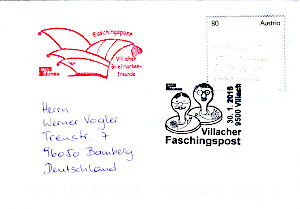 Faschingspost
Villacher
Briefmarken-
freunde
80 Austria
30.1.2016
9500 Villach
Villacher
Faschingspost
Herrn
Werner Vogler
96050 Bamberg
Deutschland